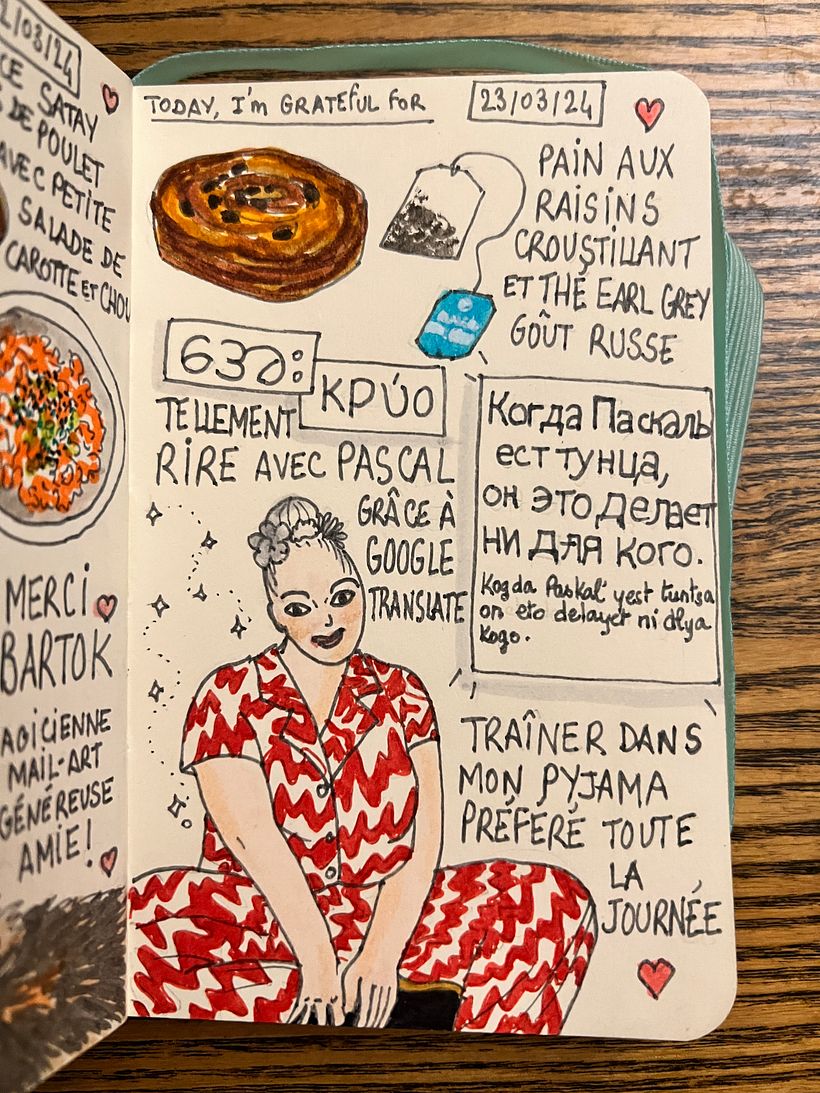 /03/24
CE SATAY
DE POULET
AVEC PETITE
SALADE DE
CAROTTE ET CHOU
MERCI
BARTOK
AGICIENNE
MAIL-ART
GÉNÉREUSE
AMIE!
TODAY, I'm GRATEFUL FOR
23/03/24
PAIN AUX
RAISINS
CROUSTILLANT
ET THÉ EARL GREY
GOÛT RUSSE
κρύο
TELLEMENT
RIRE AVEC PASCAL
GRÂCE À
GOOGLE
TRANSLATE
Когда Паскаль
ест тунца,
он это делает
ни для кого.
Kogda Paskal' yest tuntsa
on eto delayet ni dlya
kogo.
TRAÎNER DANS
MON PYJAMA
PRÉFERÉ TOUTE
LA
JOURNÉE